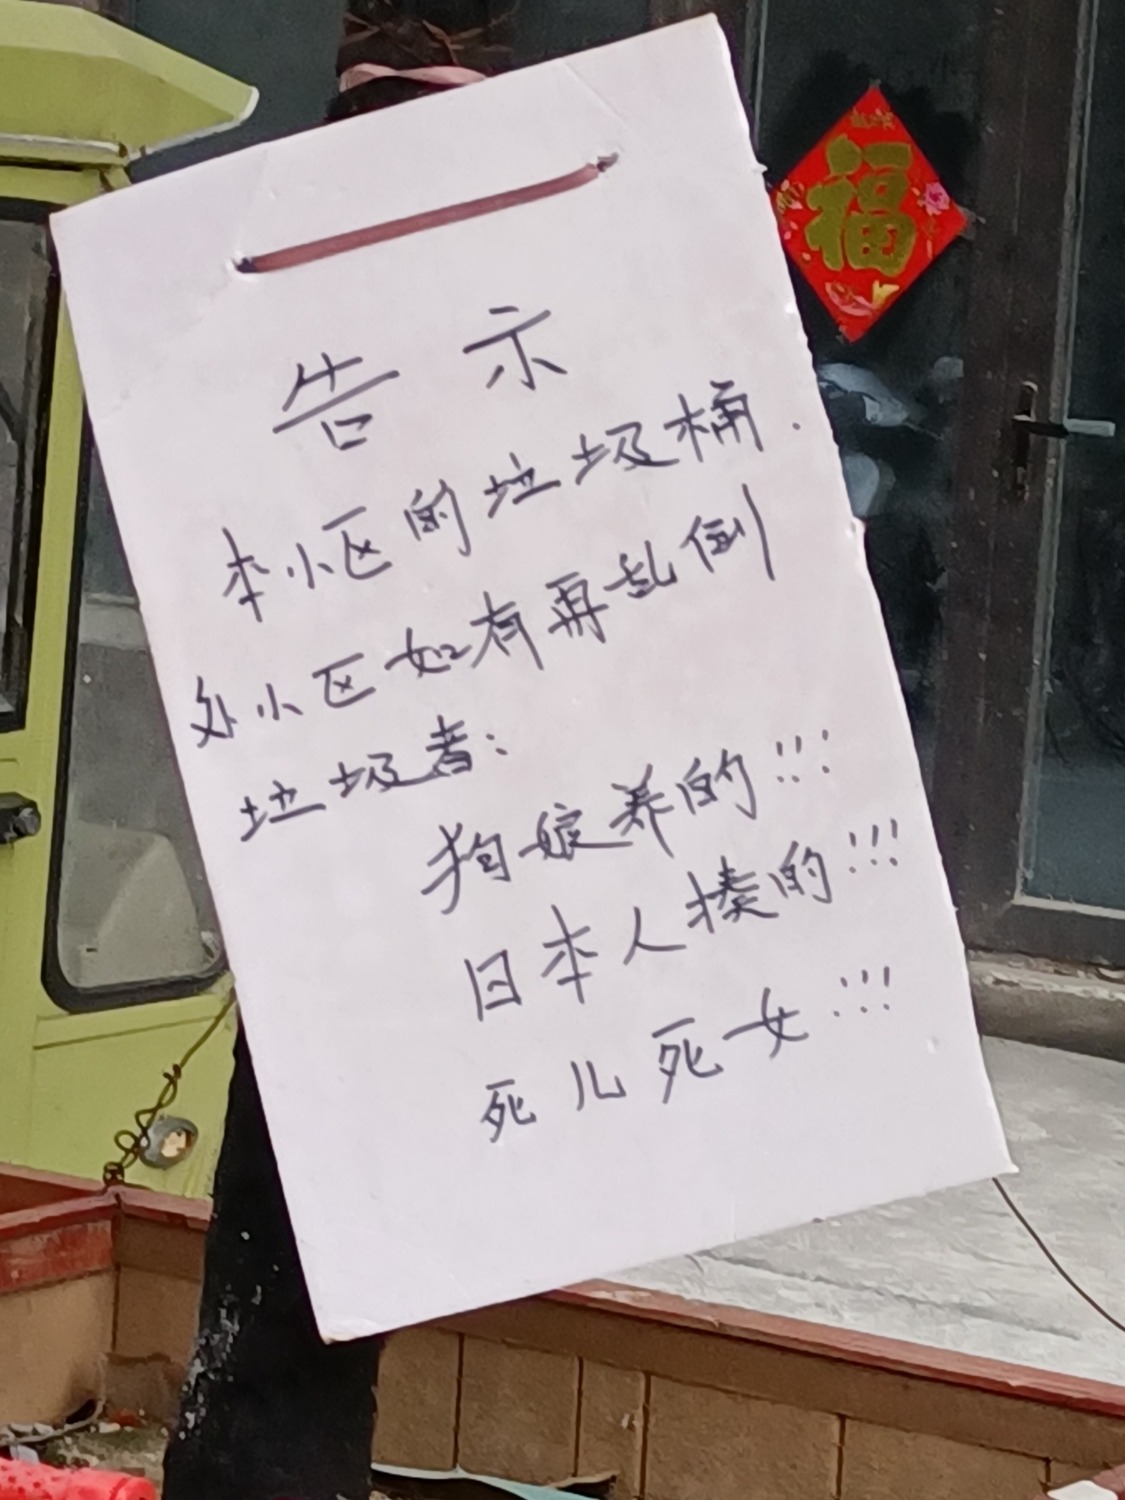 告示
本小区的垃圾桶.
外小区如有再乱倒
垃圾者:
狗娘养的!!!
日本人揍的!!!
死儿死女!!!
福